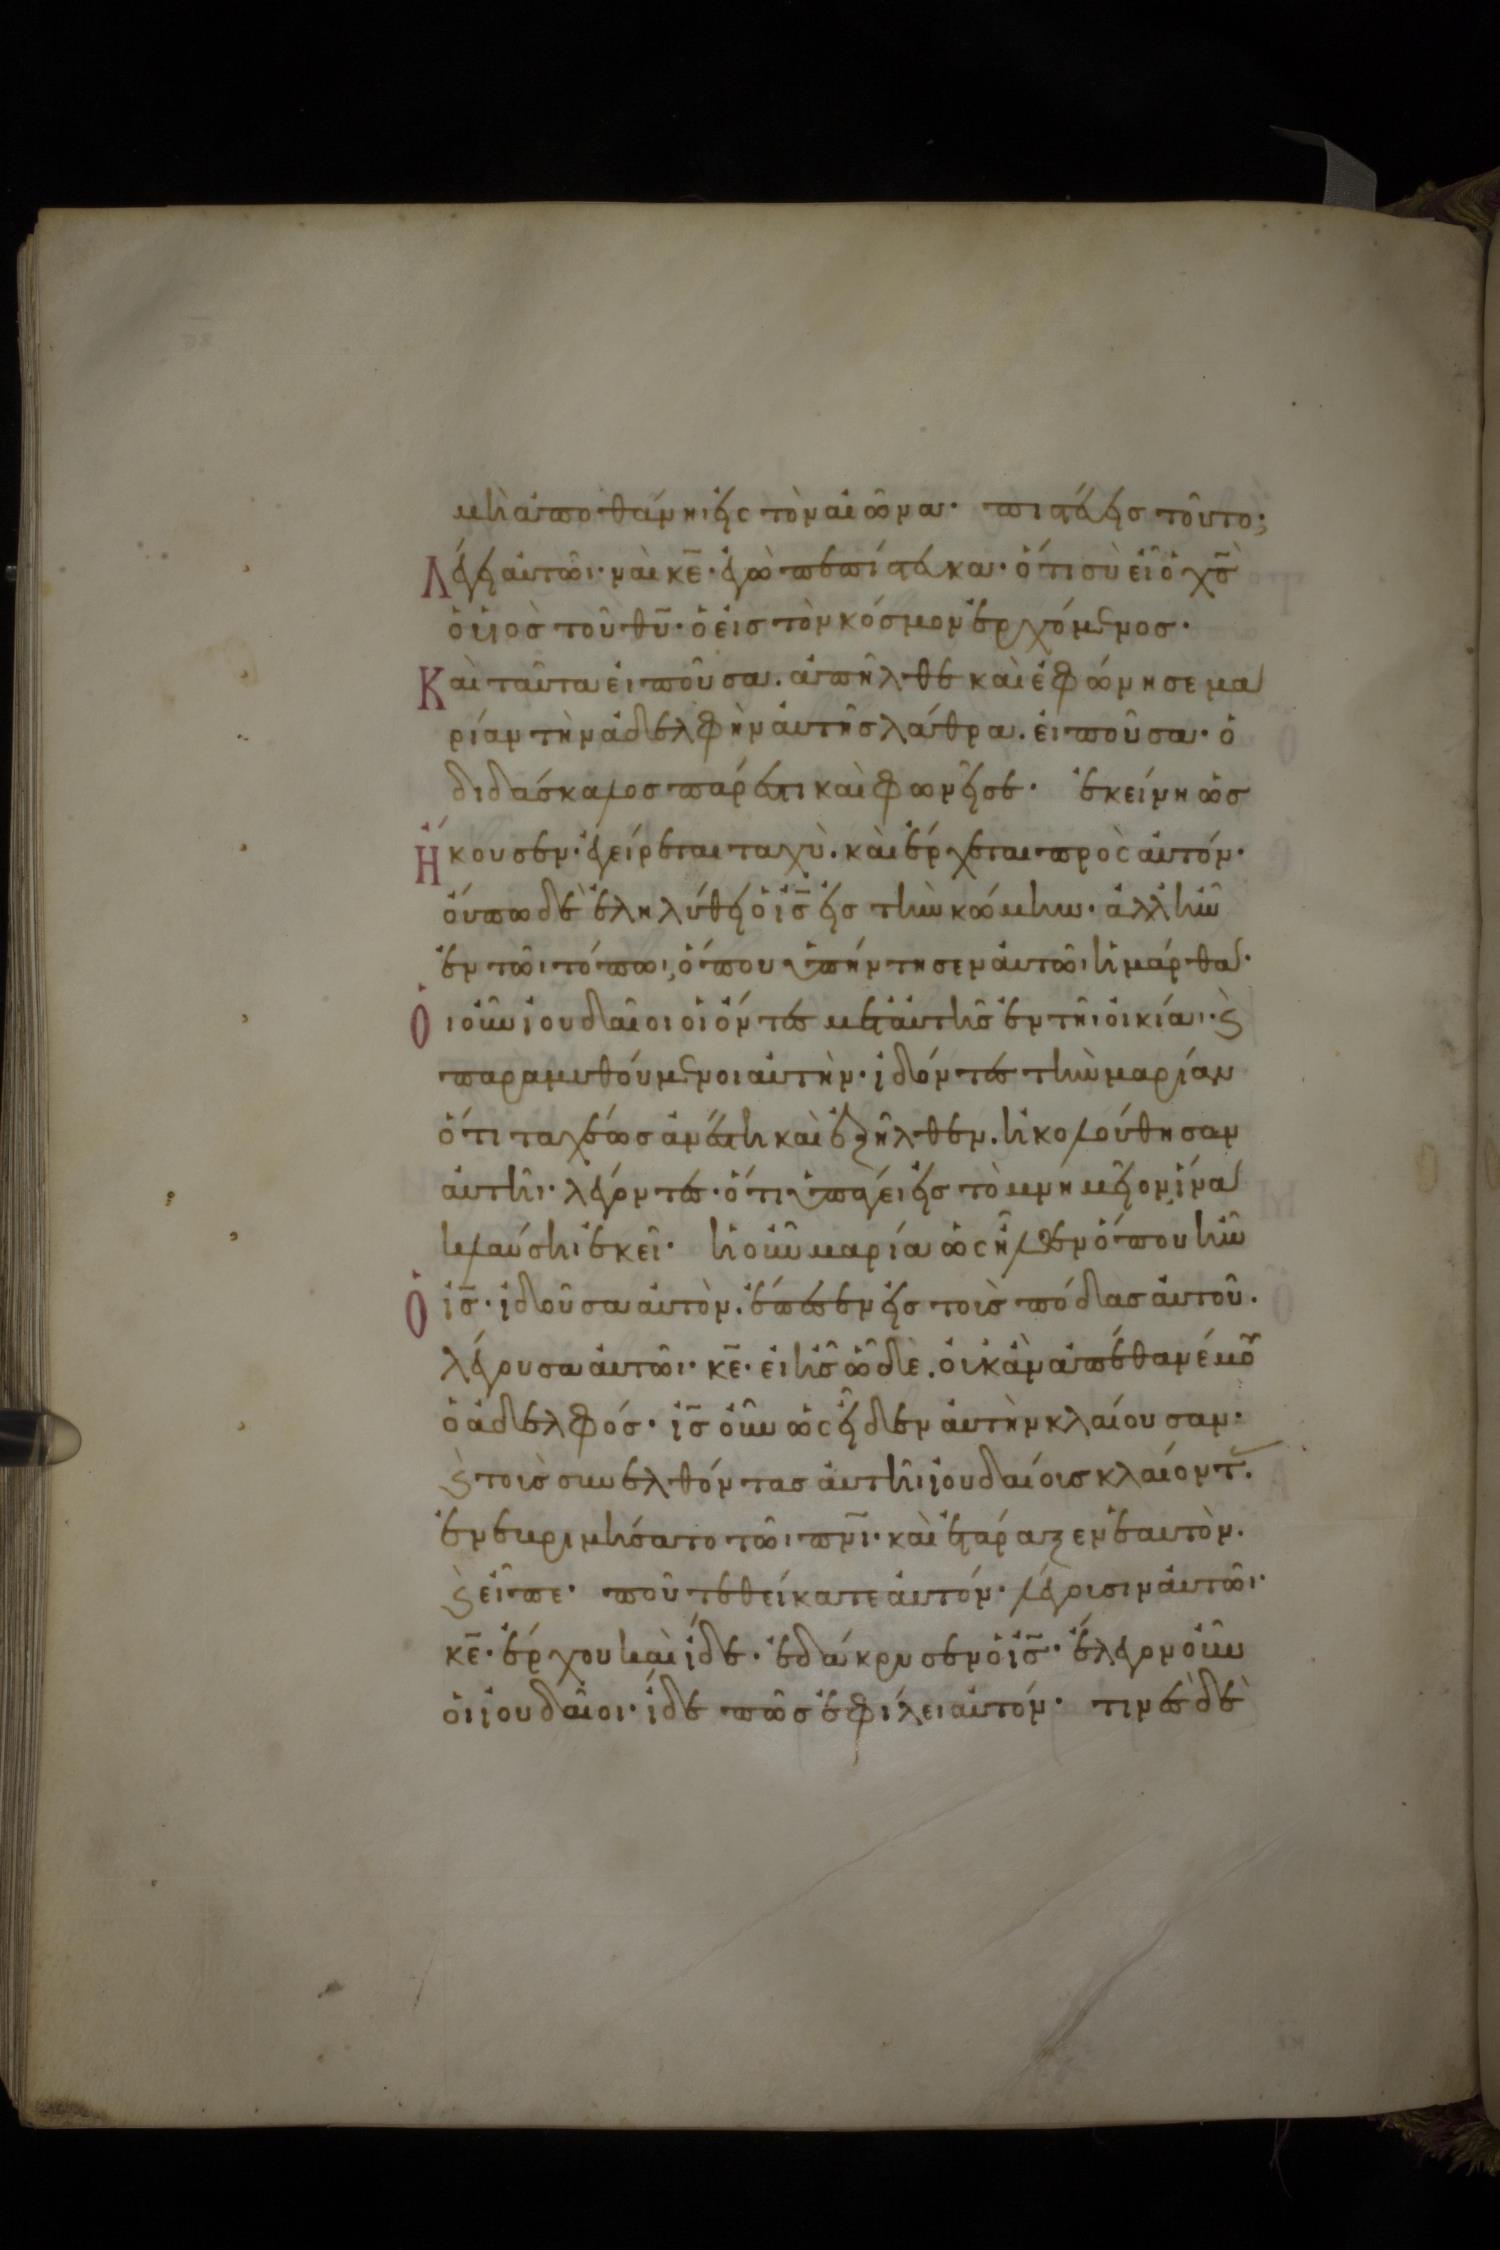 μὴ ἀποθάνηι εἰς τὸν αἰῶνα· πιστεύεις τοῦτο;
Λέγει αὐτῶι· ναὶ κε̅· ἐγὼ πεπίστευκα· ὅτι σὺ εἶ ὁ χς̅
ὁ υἱὸς τοῦ θυ̅· ὁ εἰς τὸν κόσμον ἐρχόμενος·
Καὶ ταῦτα εἰποῦσα. ἀπῆλθε καὶ ἐφώνησε μα
ρίαν τὴν ἀδελφὴν αὐτῆς λάθρα. εἰποῦσα· ὁ
διδάσκαλος πάρεστι καὶ φωνεῖ σε· ἐκείνη ὡς
Ἤκουσεν· ἐγείρεται ταχὺ. καὶ ἔρχεται πρὸς αὐτόν·
οὔπω δὲ ἐληλύθει ὁ ις̅ εἰς τὴν κώμην· ἀλλ ἦν
ἐν τῶι τόπωι, ὅπου ὑπήντησεν αὐτῶι ἡ μάρθα·
Ὁι οὖν ἰουδαῖοι οἱ ὄντες μετ αὐτῆς ἐν τῆι οἰκίαι· ϗ
παραμυθούμενοι αὐτὴν· ἰδόντες τὴν μαρίαν
ὅτι ταχέως ἀνέστη καὶ ἐξῆλθεν. ἠκολούθησαν
αὐτῆι· λέγοντες· ὅτι ὑπάγει εἰς τὸ μνημεῖον ἵνα
κλαύσηι ἐκεῖ· ἡ οὖν μαρία ὡς ἦλθεν ὅπου ἦν
Ὁ ις̅· ἰδοῦσα αὐτὸν. ἔπεσεν εἰς τοὺς πόδας αὐτοῦ.
λέγουσα αὐτῶι· κε̅· εἰ ἦς ὧδε. οὐκ ἂν ἀπέθανέ μου
ὁ ἀδελφός· ις̅ οὖν ὡς εἶδεν αὐτὴν κλαίουσαν·
ϗ τοὺς συνελθόντας αὐτῆι ἰουδαίους κλαίοντ.
ἐνεβριμήσατο τῶι πνι̅· καὶ ἐτάραξεν ἑαυτὸν.
ϗ εἶπε· ποῦ τεθείκατε αὐτόν· λέγουσιν αὐτῶι·
κε̅· ἔρχου καὶ ἴδε· ἐδάκρυσεν ὁ ις̅· ἔλεγον οὖν
οἱ ἰουδαῖοι· ἴδε πῶς ἐφίλει αὐτόν· τινὲς δὲ